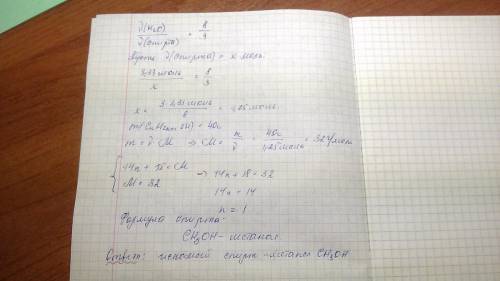 ν(H₂O) / ν(спирта) = 8/3
Пусть ν(спирта) = x моль.
3,33 моль / x = 8/3
x = 3 · 3,33 моль / 8 = 1,25 моль.
m(CnH2n+1OH) = 40г
m = ν · M → M = m/ν = 40г / 1,25 моль = 32 г/моль
14n + 18 = M
M = 32 → 14n + 18 = 32
14n = 14
n = 1
Формула спирта:
CH₃OH - метанол.
Ответ: искомый спирт - метанол CH₃OH